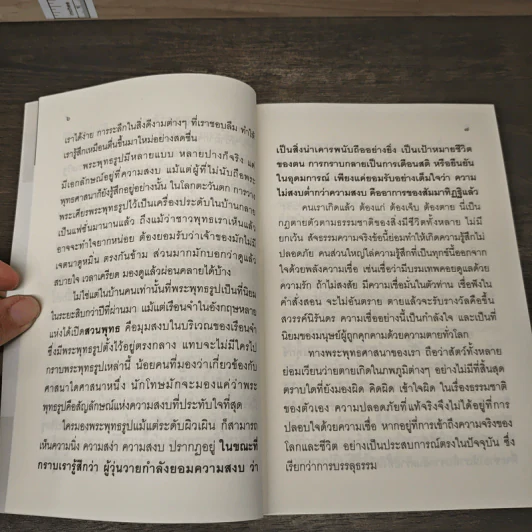 ๖
เราได้ง่าย การระลึกในสิ่งดีงามต่างๆ ที่เราชอบลืม ทำให้
เรารู้สึกเหมือนตื่นขึ้นมาใหม่อย่างสดชื่น
พระพุทธรูปมีหลายแบบ หลายปางก็จริง แต่
มีเอกลักษณ์อยู่ที่ความสงบ แม้แต่ผู้ที่ไม่นับถือพระ
พุทธศาสนาก็ยังรู้สึกอยู่อย่างนั้น ในโลกตะวันตก การวาง
พระเศียรพระพุทธรูปไว้เป็นเครื่องประดับในบ้านกลาย
เป็นแฟชั่นมานานแล้ว ถึงแม้ว่าชาวพุทธเราเห็นแล้ว
อาจจะทำใจยากหน่อย ต้องยอมรับว่าเจ้าของมักไม่มี
เจตนาดูหมิ่น ตรงกันข้าม ส่วนมากมักบอกว่าดูแล้ว
สบายใจ เวลาเครียด มองดูแล้วผ่อนคลายได้บ้าง
ไม่ใช่แต่ในบ้านคนเท่านั้นที่พระพุทธรูปเป็นที่นิยม
ในระยะสิบกว่าปีที่ผ่านมา แม้แต่เรือนจำในอังกฤษหลาย
แห่งได้เปิดสวนพุทธ คือมุมสงบในบริเวณของเรือนจำ
ซึ่งมีพระพุทธรูปตั้งไว้อยู่ตรงกลาง แทบจะไม่มีใครไป
กราบพระพุทธรูปเหล่านี้ น้อยคนที่มองว่าเกี่ยวข้องกับ
ศาสนาใดศาสนาหนึ่ง นักโทษมักจะมองแค่ว่าพระ
พุทธรูปคือสัญลักษณ์แห่งความสงบที่ประทับใจที่สุด
ใครมองพระพุทธรูปแม้แต่ระดับผิวเผิน ก็สามารถ
เห็นความนิ่ง ความสง่า ความสงบ ปรากฏอยู่ ในขณะที่
กราบเรารู้สึกว่า ผู้วุ่นวายกำลังยอมความสงบ ว่า
๗
เป็นสิ่งน่าเคารพนับถืออย่างยิ่ง เป็นเป้าหมายชีวิต
ของตน การกราบกลายเป็นการเตือนสติ หรือยืนยัน
ในอุดมการณ์ เพียงแค่ยอมรับอย่างเต็มใจว่า ความ
ไม่สงบต่ำกว่าความสงบ คืออาการของสัมมาทิฏฐิแล้ว
คนเราเกิดแล้ว ต้องแก่ ต้องเจ็บ ต้องตาย นี่เป็น
กฎตายตัวตามธรรมชาติของสิ่งมีชีวิตทั้งหลาย ไม่มี
ยกเว้น สัจธรรมความจริงข้อนี้ย่อมทำให้เกิดความรู้สึกไม่
ปลอดภัย คนส่วนใหญ่ไล่ความรู้สึกที่เป็นทุกข์นี้ออกจาก
ใจด้วยพลังความเชื่อ เช่นเชื่อว่ามีบรมเทพคอยดูแลด้วย
ความรัก ถ้าไม่สงสัย มีความเชื่อมั่นในตัวท่าน เชื่อฟังใน
คำสั่งสอน จะไม่อันตราย ตายแล้วจะรับรางวัลคือขึ้น
สวรรค์นิรันดร ความเชื่ออย่างนี้เป็นกำลังใจ และเป็นที่
นิยมของมนุษย์ผู้ถูกคุกคามด้วยความตายทั่วโลก
ทางพระพุทธศาสนาของเรา ถือว่าสัตว์ทั้งหลาย
ย่อมเวียนว่ายตายเกิดในภพภูมิต่างๆ อย่างไม่มีที่สิ้นสุด
ตราบใดที่ยังมองผิด คิดผิด เข้าใจผิด ในเรื่องธรรมชาติ
ของตัวเอง ความปลอดภัยที่แท้จริงจึงไม่ได้อยู่ที่การ
ปลอบใจด้วยความเชื่อ หากอยู่ที่การเข้าถึงความจริงของ
โลกและชีวิต อย่างเป็นประสบการณ์ตรงในปัจจุบัน ซึ่ง
เรียกว่าการบรรลุธรรม